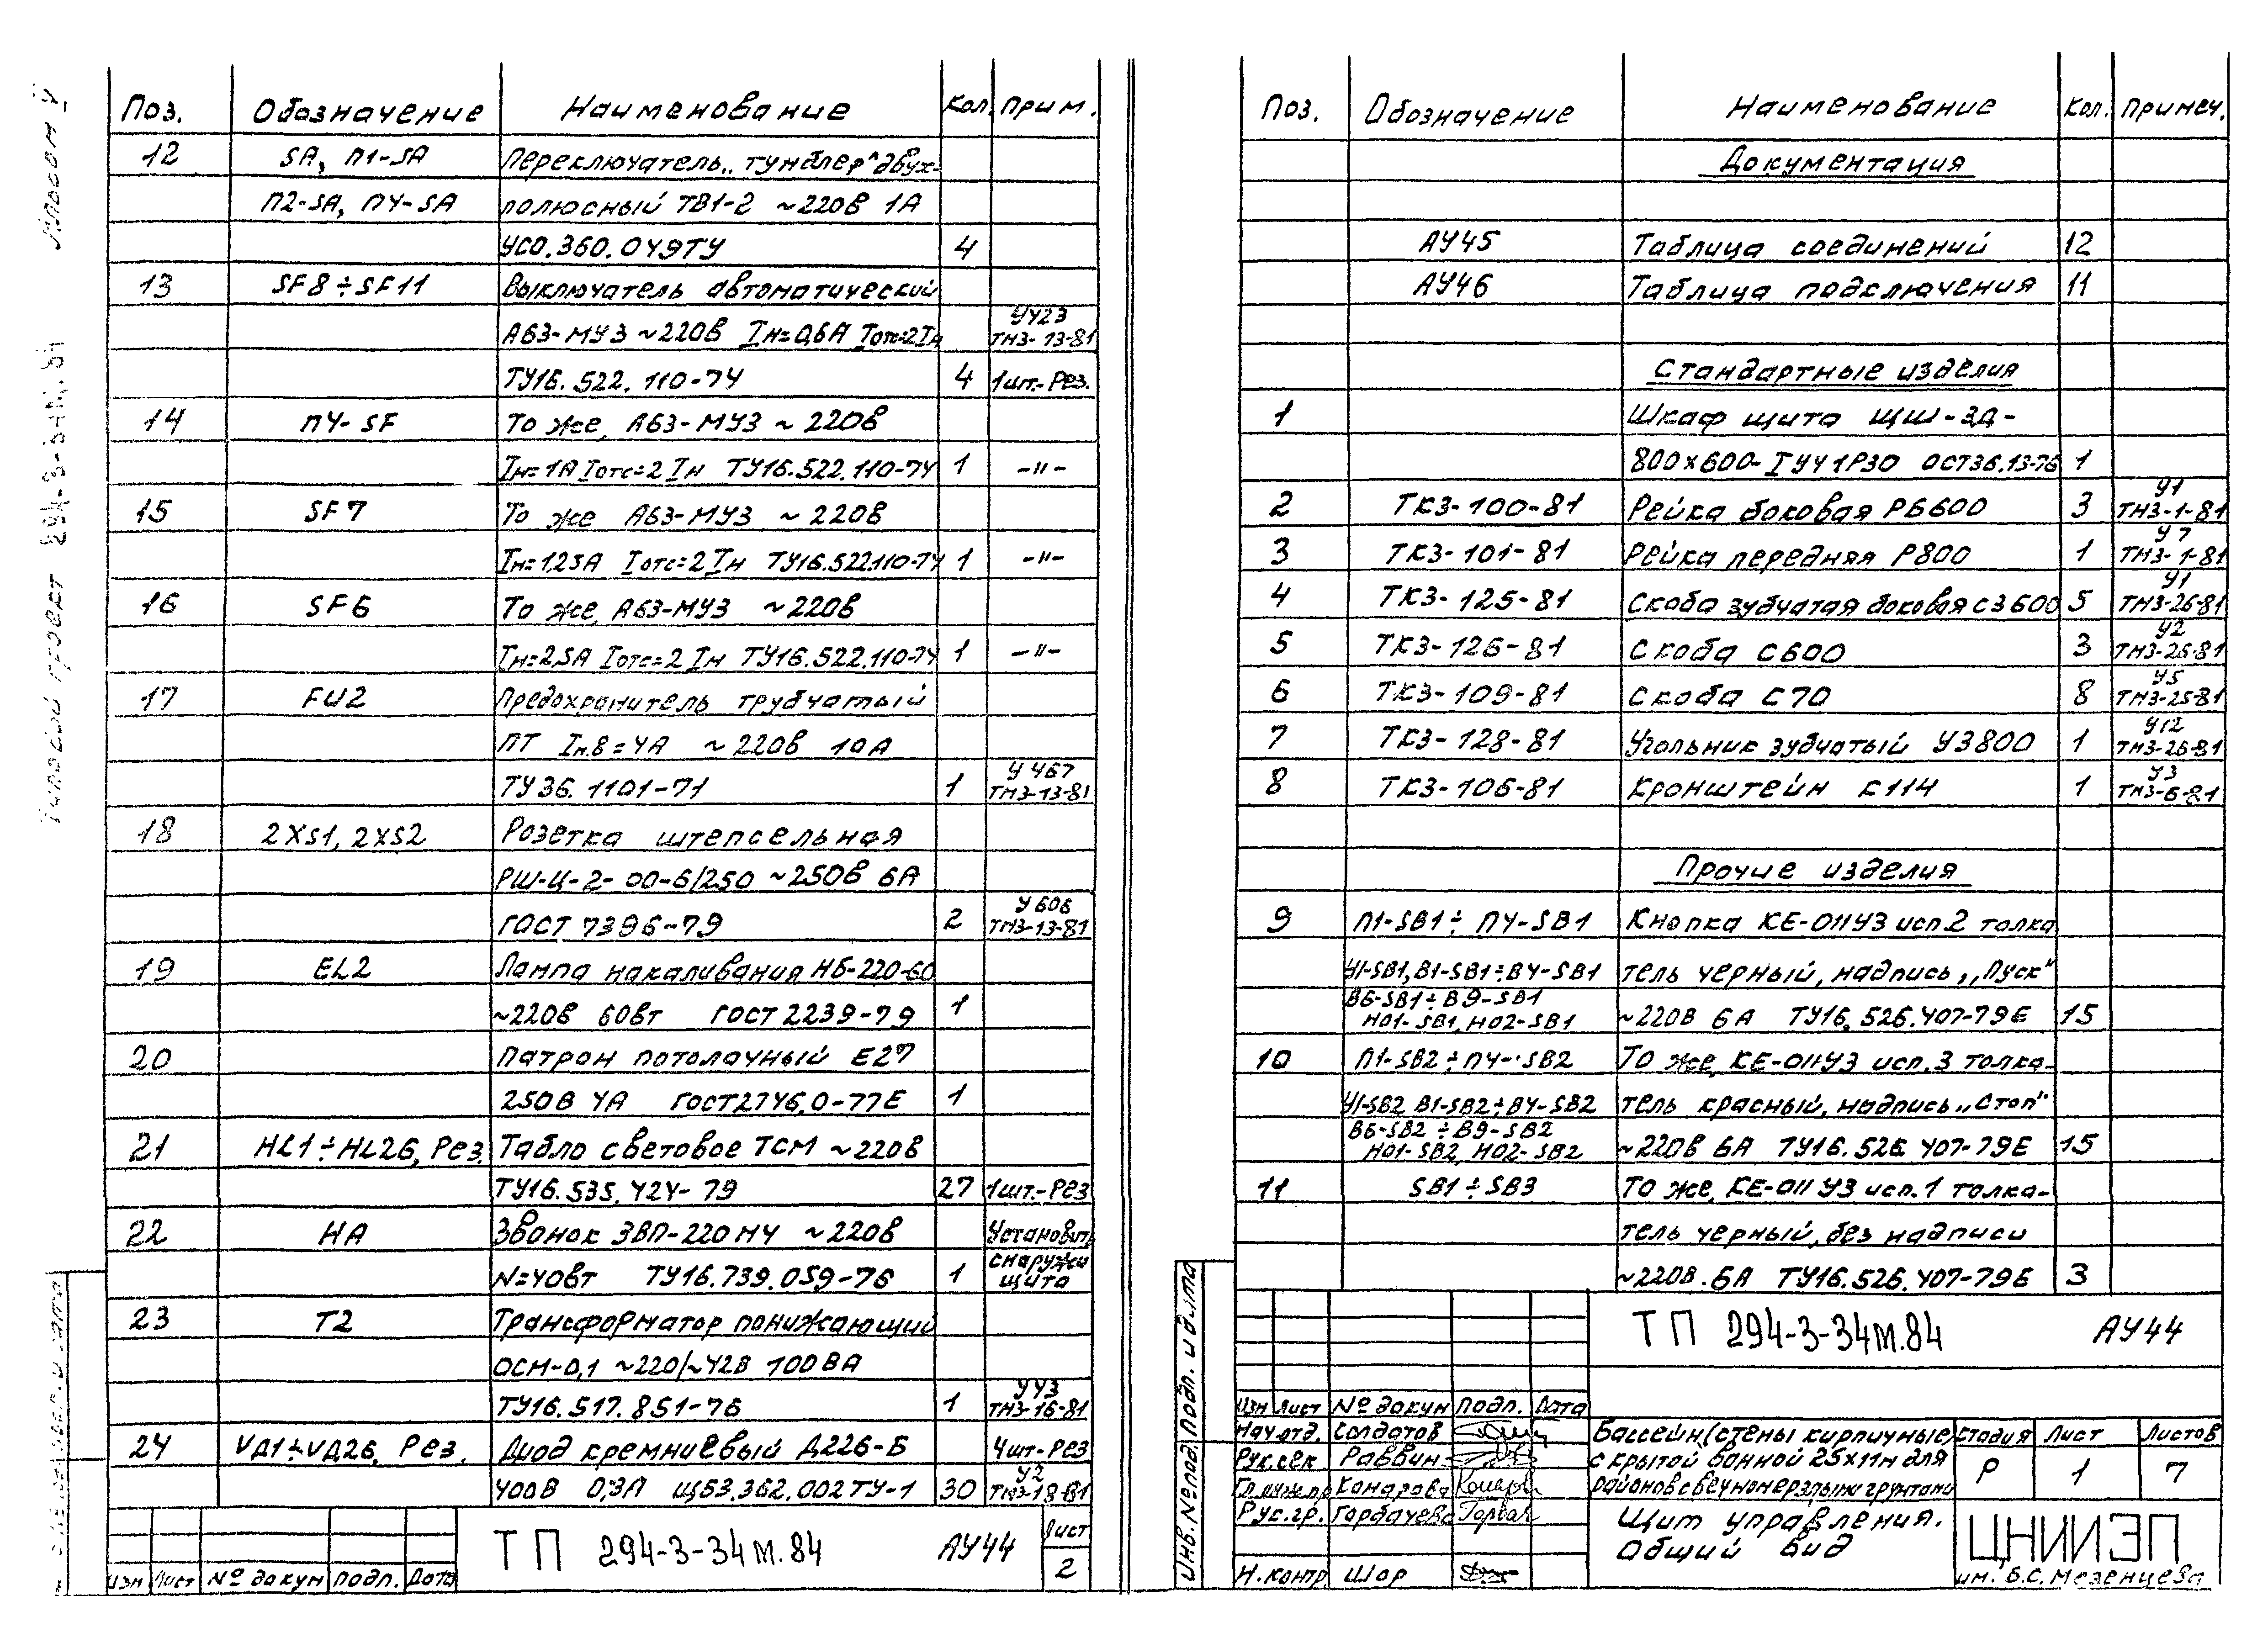 Альбом V
Типовой проект 294-3-34м.84
Поз. Обозначение Наименование Кол. Прим.
12 SA, П1-SA Переключатель „тумблер" двух-
П2-SA, П4-SA полюсный ТВ1-2 ~220в 1А
УСО.360.049ТУ 4
13 SF8÷SF11 Выключатель автоматический
А63-МУ3 ~220в Iн=0,6А Iотс=2Iн У423 ТМ3-13-81
ТУ16.522.110-74 4 1шт.-Рез.
14 П4-SF То же, А63-МУ3 ~220в
Iн=1А Iотс=2Iн ТУ16.522.110-74 1 -"-
15 SF7 То же А63-МУ3 ~220в
Iн=1,25А Iотс=2Iн ТУ16.522.110-74 1 -"-
16 SF6 То же, А63-МУ3 ~220в
Iн=2,5А Iотс=2Iн ТУ16.522.110-74 1 -"-
17 FU2 Предохранитель трубчатый
ПТ Iн.в=4А ~220в 10А
ТУ36.1101-71 1 У467 ТМ3-13-81
18 2XS1, 2XS2 Розетка штепсельная
РШ-Ц-2-00-6/250 ~250в 6А
ГОСТ 7396-79 2 У606 ТМ3-13-81
19 EL2 Лампа накаливания НБ-220-60
~220в 60вт ГОСТ 2239-79 1
20 Патрон потолочный Е27
250В 4А ГОСТ2746.0-77Е 1
21 HL1÷HL26, Рез. Табло световое ТСМ ~220в
ТУ16.535.424-79 27 1шт.-Рез
22 НА Звонок ЗВП-220М4 ~220в Установить
N=40вт ТУ16.739.059-76 1 снаружи щита
23 Т2 Трансформатор понижающий
ОСМ-0,1 ~220/~42В 100ВА
ТУ16.517.851-76 1 У43 ТМ3-16-81
24 VД1÷VД26, Рез. Диод кремниевый Д226-Б 4шт-Рез
400В 0,3А ЩБ3.362.002ТУ-1 30 У2 ТМ3-18-81
Изм Лист № докум подп. Дата
ТП 294-3-34м.84 АУ44 Лист 2
Поз. Обозначение Наименование Кол. Примеч.
Документация
АУ45 Таблица соединений 12
АУ46 Таблица подключения 11
Стандартные изделия
1 Шкаф щита ЩШ-ЗД-
800х600-IУ41Р30 ОСТ36.13-76 1
2 ТК3-100-81 Рейка боковая РБ600 3 У1 ТМ3-1-81
3 ТК3-101-81 Рейка передняя Р800 1 У7 ТМ3-1-81
4 ТК3-125-81 Скоба зубчатая боковая СЗ600 5 У1 ТМ3-26-81
5 ТК3-126-81 Скоба С600 3 У2 ТМ3-26-81
6 ТК3-109-81 Скоба С70 8 У5 ТМ3-25-81
7 ТК3-128-81 Угольник зубчатый УЗ800 1 У12 ТМ3-26-81
8 ТК3-106-81 Кронштейн К114 1 У3 ТМ3-6-81
Прочие изделия
9 П1-SB1÷П4-SB1 Кнопка КЕ-011У3 исп.2 толка
У1-SB1, В1-SB1÷В4-SB1 тель черный, надпись „Пуск"
В6-SB1÷В9-SB1
НО1-SB1, НО2-SB1 ~220В 6А ТУ16.526.407-79Е 15
10 П1-SB2÷П4-SB2 То же, КЕ-011У3 исп.3 толка-
У1-SB2 В1-SB2÷В4-SB2 тель красный, надпись „Стоп"
В6-SB2÷В9-SB2
НО1-SB2, НО2-SB2 ~220В 6А ТУ16.526.407-79Е 15
11 SB1÷SB3 То же, КЕ-011У3 исп.1 толка-
тель черный, без надписи
~220В.6А ТУ16.526.407-79Е 3
ТП 294-3-34м.84 АУ44
Изм Лист № докум подп. Дата
Нач.отд. Солдатов
Рук.сек Раввин
Гл.инж.пр Комарова
Рук.гр. Горбачева
Н.контр Шор
Бассейн (стены кирпичные)
с крытой ванной 25х11м для
районов с вечномерзлыми грунтами
Стадия Лист Листов
Р 1 7
Щит управления.
Общий вид
ЦНИИЭП
им. Б.С. Мезенцева
Инв.№подл. Подп. и дата